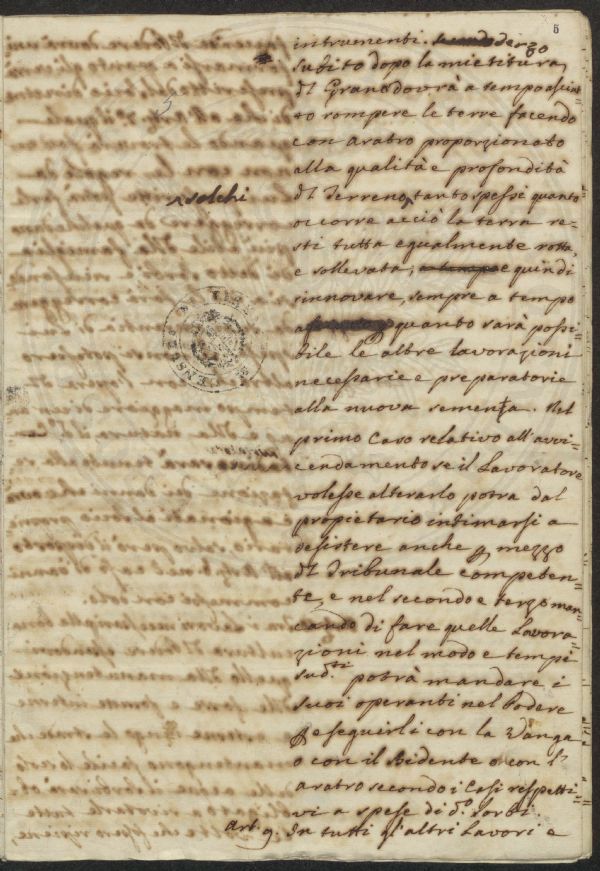 5
intrumenti. secondo derzo
subito dopo la mietitura
del Grano dovrà a tempo asciut=
to rompere le terre facendo
con aratro proporzionato
alla qualità e profondità
del Terreno, ^ tanto spesse quanto
^ solchi
occorre acciò la terra re=
sti tutta egualmente rotta,
e sollevata, a tempo e quindi
rinnovare, sempre a tempo
quanto sarà possi=
bile le altre lavorazioni
necessarie e preparatorie
alla nuova sementa. Nel
primo Caso relativo all'avvi=
cendamento se il Lavoratore
volesse alterarlo potrà dal
propietario intimarsi a
desistere anche p. mezzo
del Tribunale competen=
te, e nel secondo e terzo man=
cando di fare quelle Lavora=
zioni nel modo e tempi
sud.ti potrà mandare i
suoi operanti nel Podere
p. eseguirli con la Vanga
o con il Bidente o con l'
aratro secondo i Casi respetti=
vi a spese di d.o Sorbi
Art. 9. In tutti gl'altri Lavori e